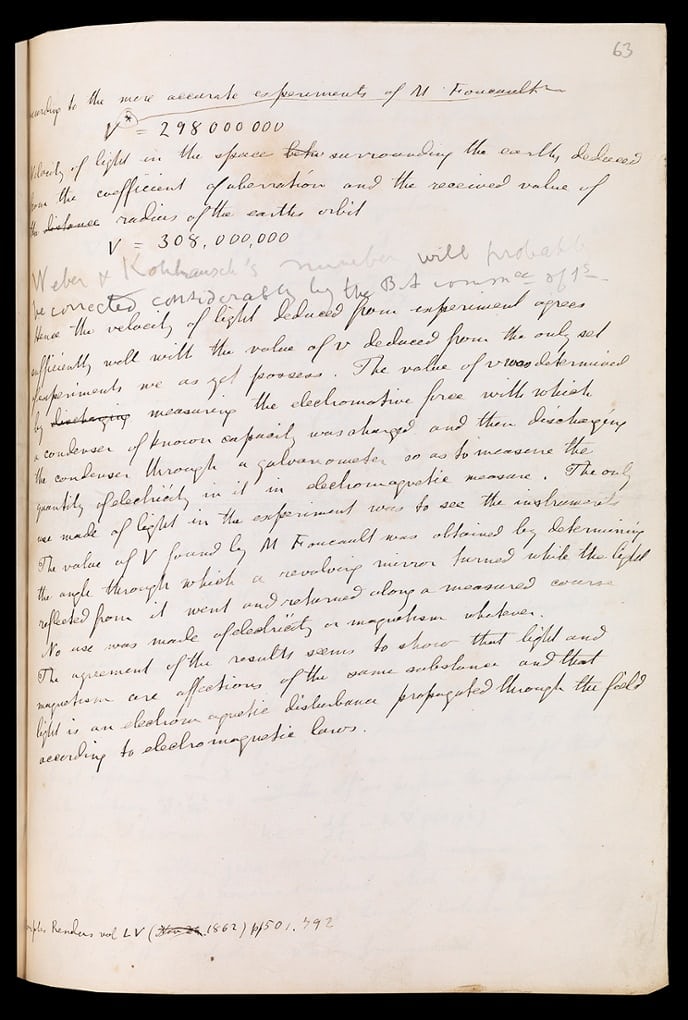 63
according to the more accurate experiments of M Foucault
V * = 298000000
Velocity of light in the space betw surrounding the earth, deduced
from the coefficient of aberration and the received value of
the distance radius of the earths orbit
V = 308,000,000
Weber & Kohlrausch's number will probably
be corrected considerably by the BA commee of 1s
Hence the velocity of light deduced from experiment agrees
sufficiently well with the value of v deduced from the only set
of experiments we as yet possess. The value of v was determined
by discharging measuring the electromotive force with which
a condenser of known capacity was charged and then discharging
the condenser through a galvanometer so as to measure the
quantity of electricity in it in electromagnetic measure. The only
use made of light in the experiment was to see the instruments
The value of V found by M Foucault was obtained by determining
the angle through which a revolving mirror turned while the light
reflected from it went and returned along a measured course
No use was made of electricity or magnetism whatever.
The agreement of the results seems to show that light and
magnetism are affections of the same substance and that
light is an electromagnetic disturbance propagated through the field
according to electromagnetic laws.
Comptes Rendus vol LV ( 1862) pp 501, 792